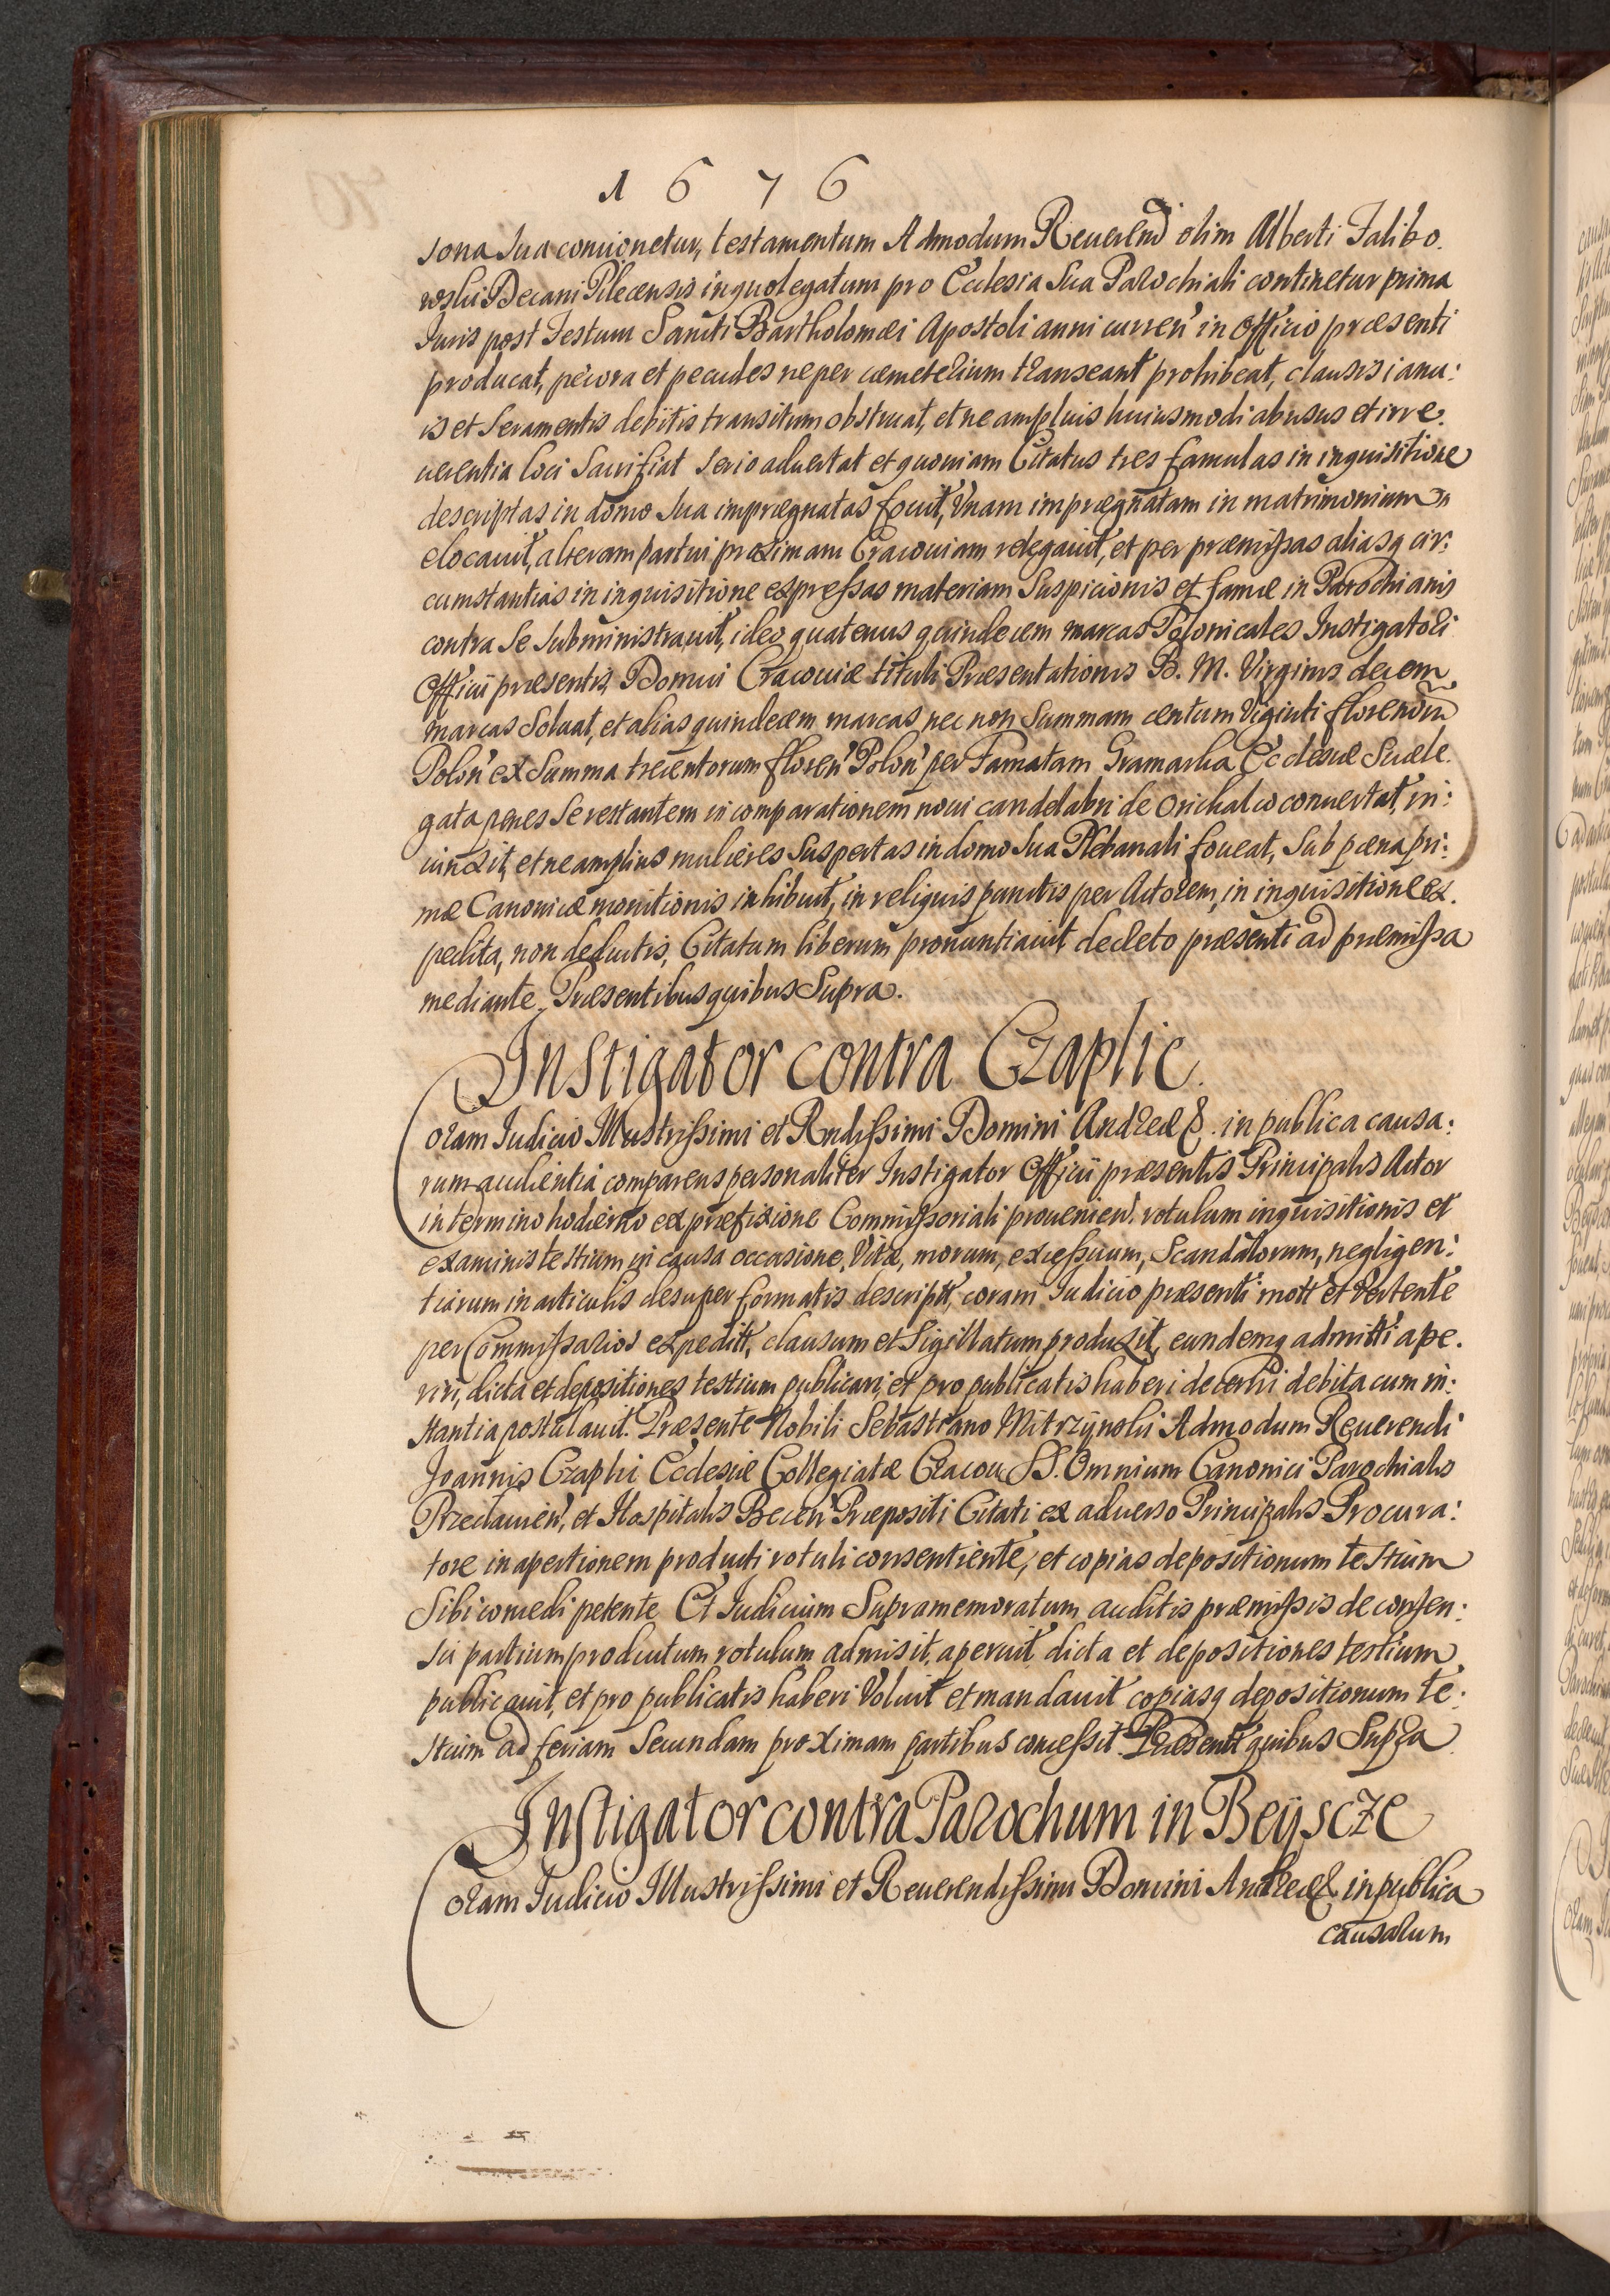 1676
sona sua conuionetur, testamentum Admodum Reuerend olim Alberti Falibo.
wski Decani Pilecensis in quo legatum pro Ecclesia sua Parochiali continetur prima
Iuris post Festum Sancti Bartholomæi Apostoli anni curren' in Officio præsenti
producat, pecora et pecudes ne per cæmeterium transeant prohibeat, clausis ianu:
is et seramentis debitis transitum obstruat, et ne amplius huiusmodi abusus et irre:
uerentia loci Sacri fiat serio aduertat et quoniam Citatus tres famulas in inquisitione
descriptas in domo sua imprægnatas fouit, Vnam imprægnatam in matrimonium
elocauit, alteram partui proximam Cracouiam relegauit, et per præmissas aliasq cir:
cumstantias in inquisitione expressas materiam suspicionis et famæ in Parochianis
contra se subministrauit, ideo quatenus quindecem marcas Polonicales Instigatori
Officii præsentis, Domui Cracouiæ tituli Præsentationis B. M. Virginis decem
marcas soluat, et alias quindecem marcas nec non summam centum Viginti florenorū
Polon' ex summa trecentorum floren' Polon' per Famatam Gramarka Ecclesiæ suæ le.
gata penes se restantem in comparationem noui candelabri de orichalco conuertat, in:
iunxit, et ne amplius mulieres suspectas in domo sua Plebanali foueat, sub pœna pri:
mæ Canonicæ monitionis inhibuit, in reliquis punctis per Actorem, in inquisitione ex.
pedita, non deductis, Citatum liberum pronuntiauit decreto præsenti ad præmissa
mediante. Præsentibus quibus Supra.
Instigator contra Czaplic.
Coram Iudicio Illustrissimi et Rndissimi Domini Andreæ &. in publica causa:
rum audientia comparens personaliter Instigator Officii præsentis Principalis Actor
in termino hodierno ex præfixione Commissoriali prouenien'. rotulum inquisitionis et
examinis testium in causa occasione, Vitæ, morum, excessuum, Scandalorum, negligen:
tiarum in articulis desuper formatis descript', coram Iudicio præsenti mott' et Vertente
per Commissarios expedit', clausum et Sigillatum produxit, eundemq admitti ape.
riri, dicta et depositiones testium publicari, et pro publicatis haberi decerni debita cum in:
stantia postulauit. Præsente Nobili Sebastiano Mitrzynski Admodum Reuerendi
Joannis Czaplic Ecclesiæ Collegiatæ Cracou SS. Omnium Canonici Parochialis
Przeclauien', et Hospitalis Becen' Præpositi Citati ex aduerso Principalis Procura:
tore in apertionem producti rotuli consentiente, et copias depositionum testium
Sibi concedi petente Et Iudicium Supramemoratum auditis præmissis de consen:
su partium productum rotulum admisit, aperuit, dicta et depositiones testium
publicauit, et pro publicatis haberi Voluit et mandauit copiasq depositionum te:
stium ad feriam Secundam proximam partibus concessit. Præsent' quibus Supra
Instigator contra Parochum in Beyscze
Coram Iudicio Illustrissimi et Reuerendissimi Domini Andreæ & in publica
causarum